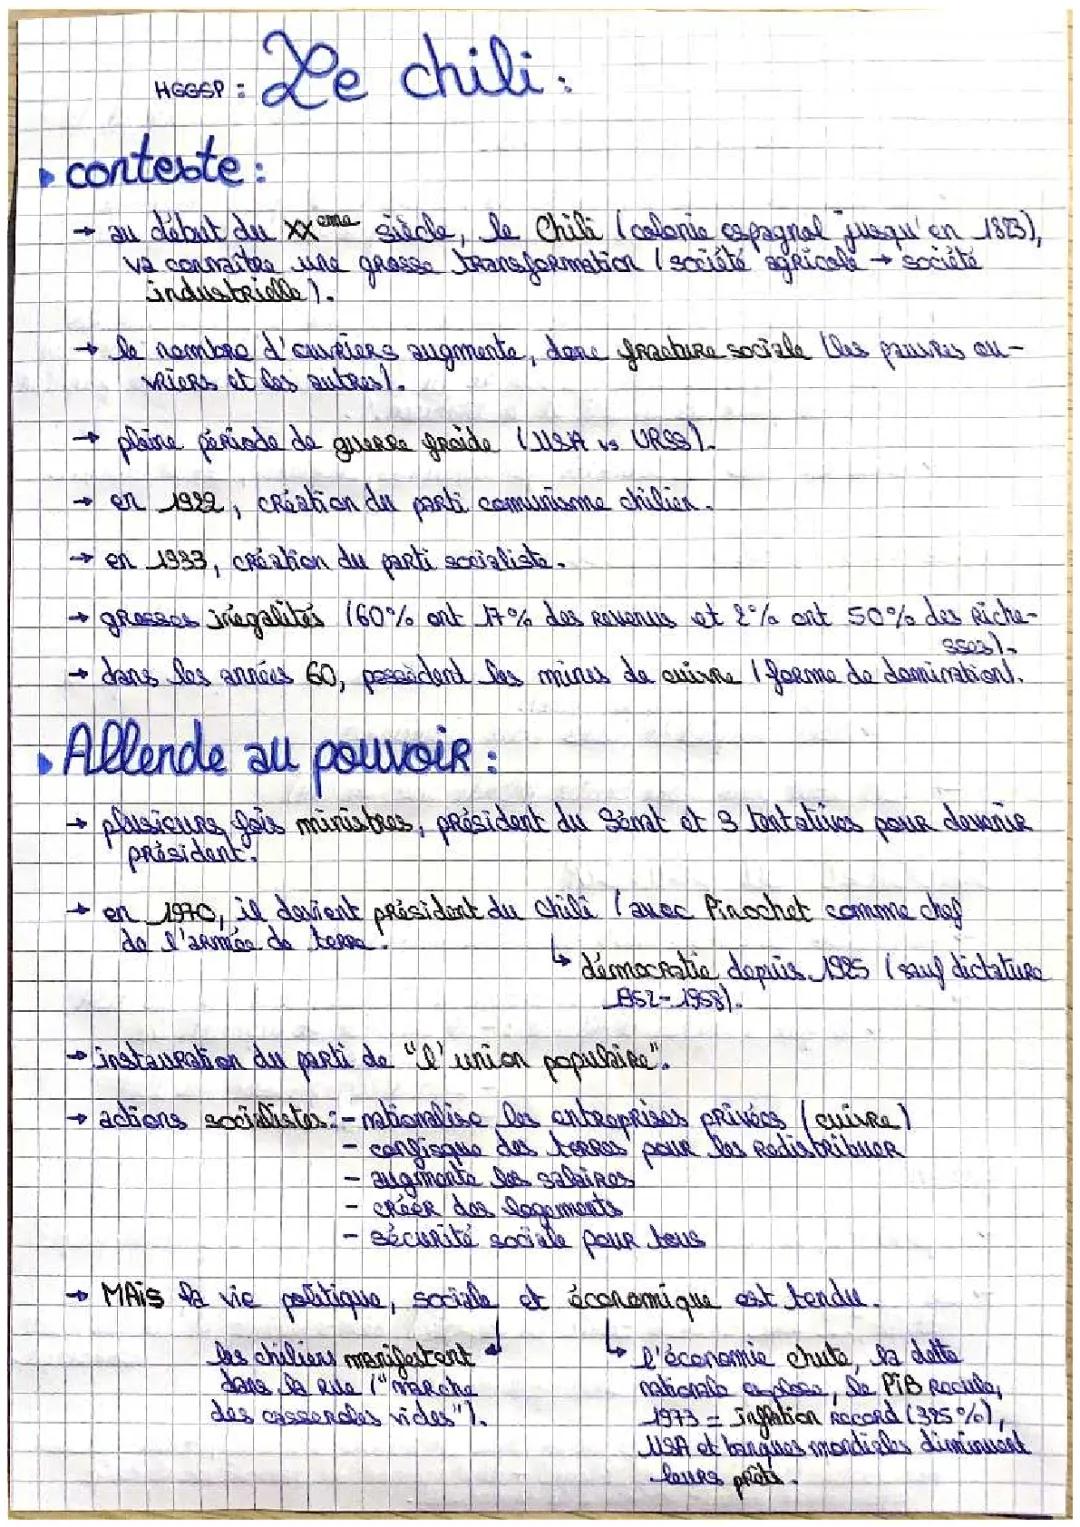 HGGSP : Le chili :
▸ contexte :
→ au début du XXème siècle, le Chili (colonie espagnol jusqu'en 1823),
va connaitre une grosse transformation (société agricole → société
industrielle).
→ le nombre d'ouvriers augmente, donc fracture sociale (les pauvres ou-
vriers et les autres).
→ pleine période de guerre froide (USA vs URSS).
→ en 1922, création du parti comunisme chilien.
→ en 1933, création du parti socialiste.
→ grosses inégalités (60% ont 17% des revenus et 2% ont 50% des riche-
sses).
→ dans les années 60, possèdent les mines de cuivre (forme de domination).
▸ Allende au pouvoir :
→ plusieurs fois ministres, président du Sénat et 3 tentatives pour devenir
président.
→ en 1970, il devient président du Chili (avec Pinochet comme chef
de l'armée de terre.
↳ démocratie depuis 1925 (sauf dictature
1952-1958).
→ instauration du parti de "l'union populaire".
→ actions socialistes : - nationalise les entreprises privées (cuivre)
- confisque des terres pour les redistribuer
- augmente les salaires
- créer des logements
- sécurité sociale pour tous
→ MAis la vie politique, sociale et économique est tendu.
les chiliens manifestent
dans la rue ("marche
des casseroles vides").
↳ l'économie chute, la dette
nationale explose, le PiB recule,
1973 = inflation record (325%),
USA et banques mondiales diminuent
leurs prêts.